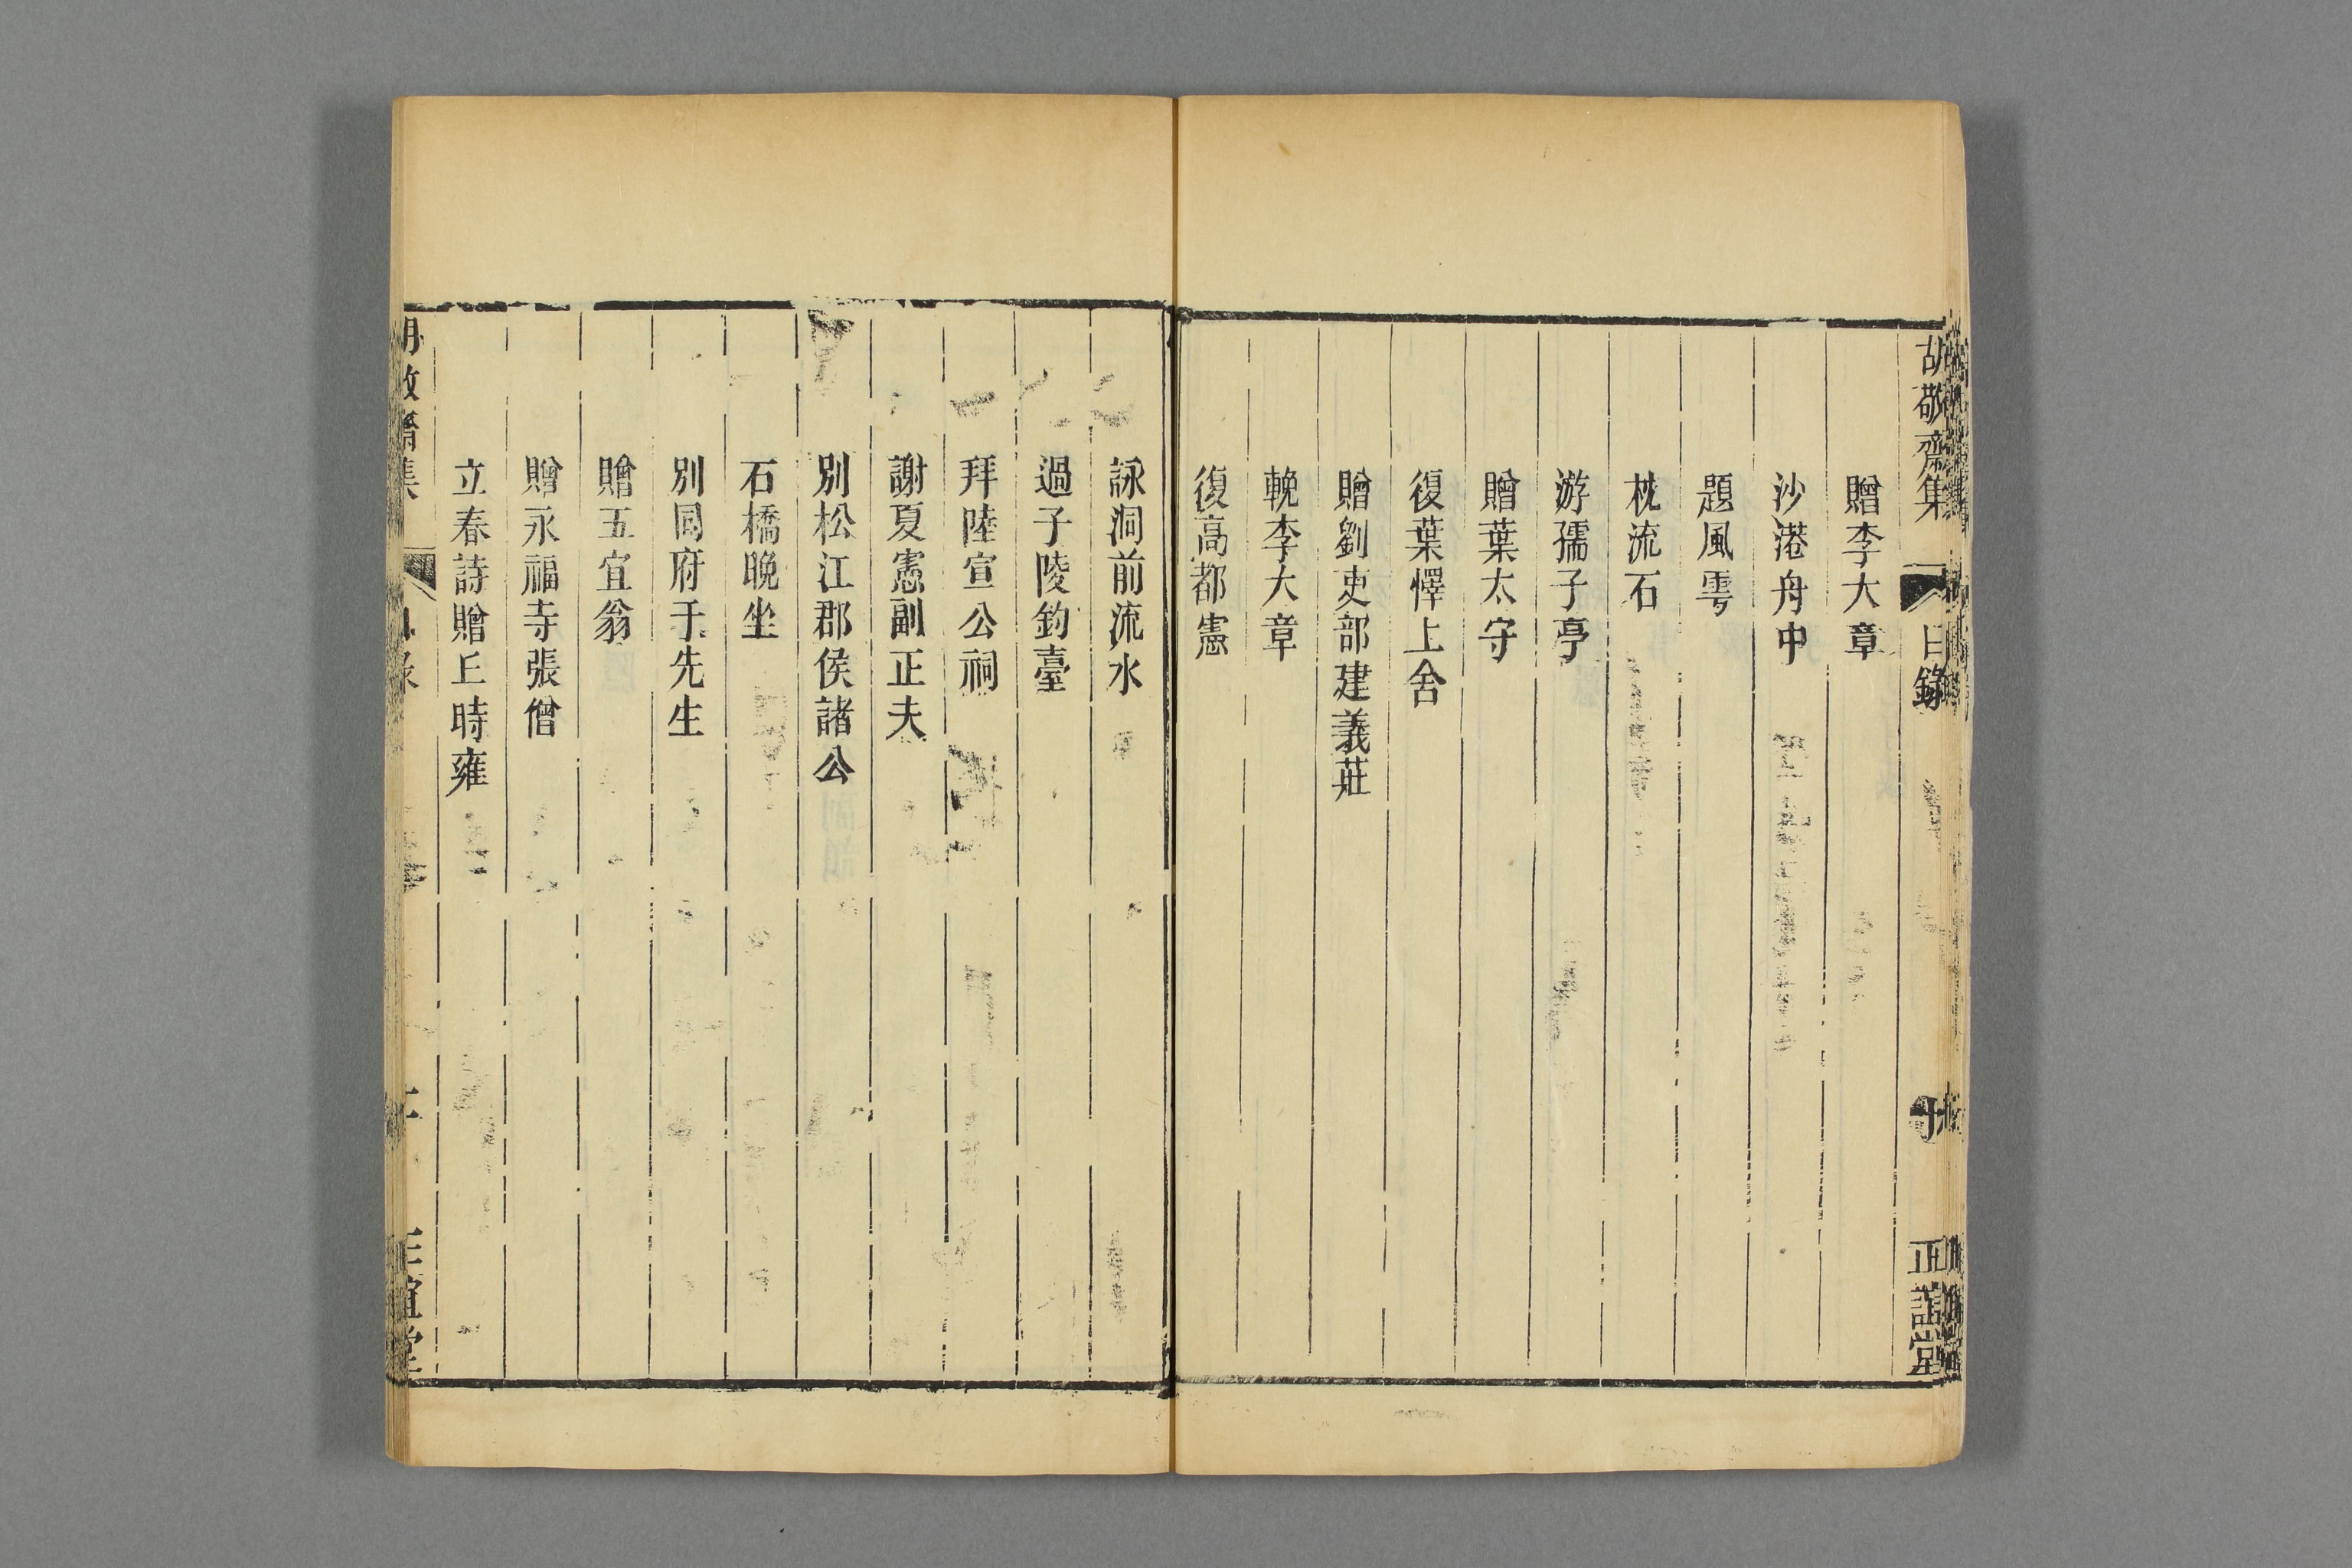 胡敬齋集
目錄
正誼堂
贈李大章
沙港舟中
題風雩
枕流石
游孺子亭
贈葉太守
復葉懌上舍
贈劉吏部建義莊
輓李大章
復高都憲
詠洞前流水
過子陵釣臺
拜陸宣公祠
謝夏憲副正夫
別松江郡侯諸公
石橋晚坐
別同府于先生
贈五宜翁
贈永福寺張僧
立春詩贈丘時雍
胡敬齋集
目錄
正誼堂